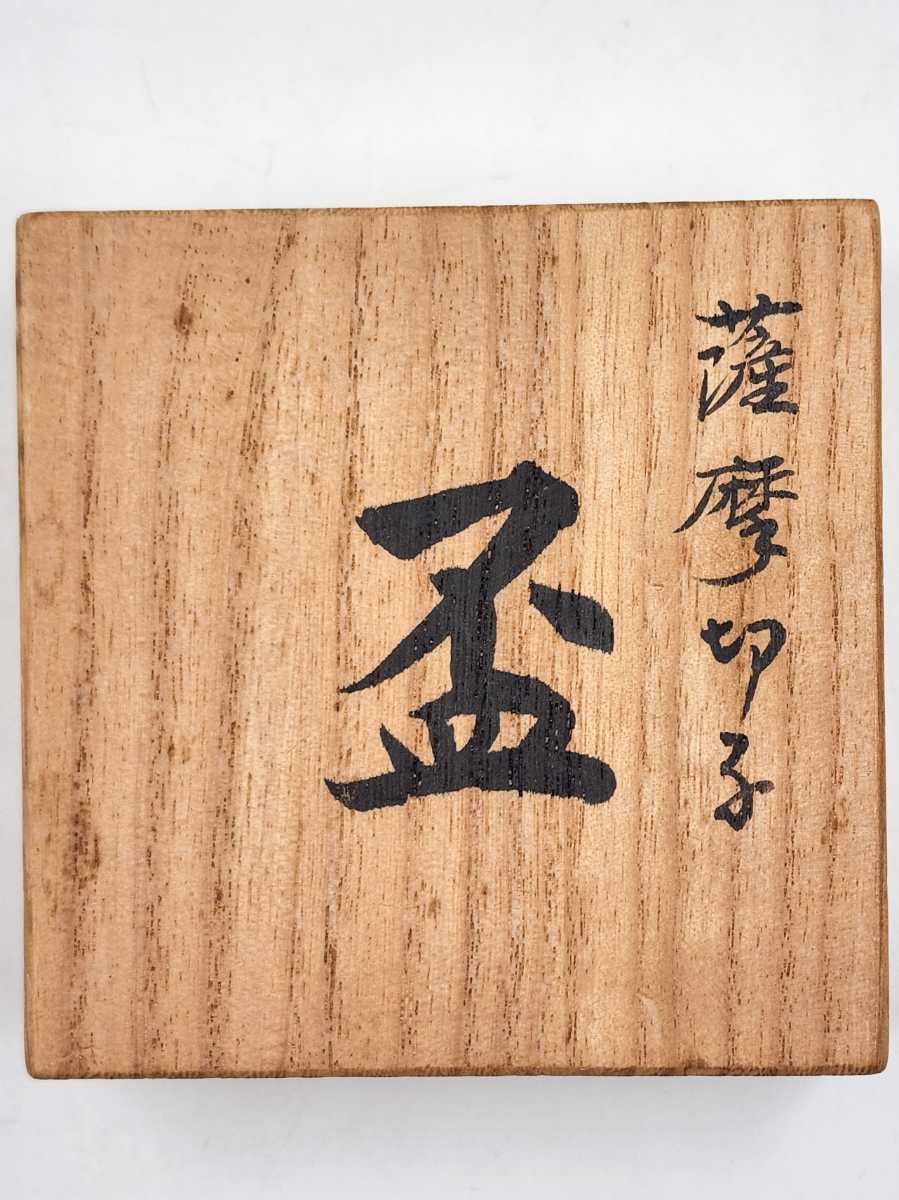 薩摩切子
盃